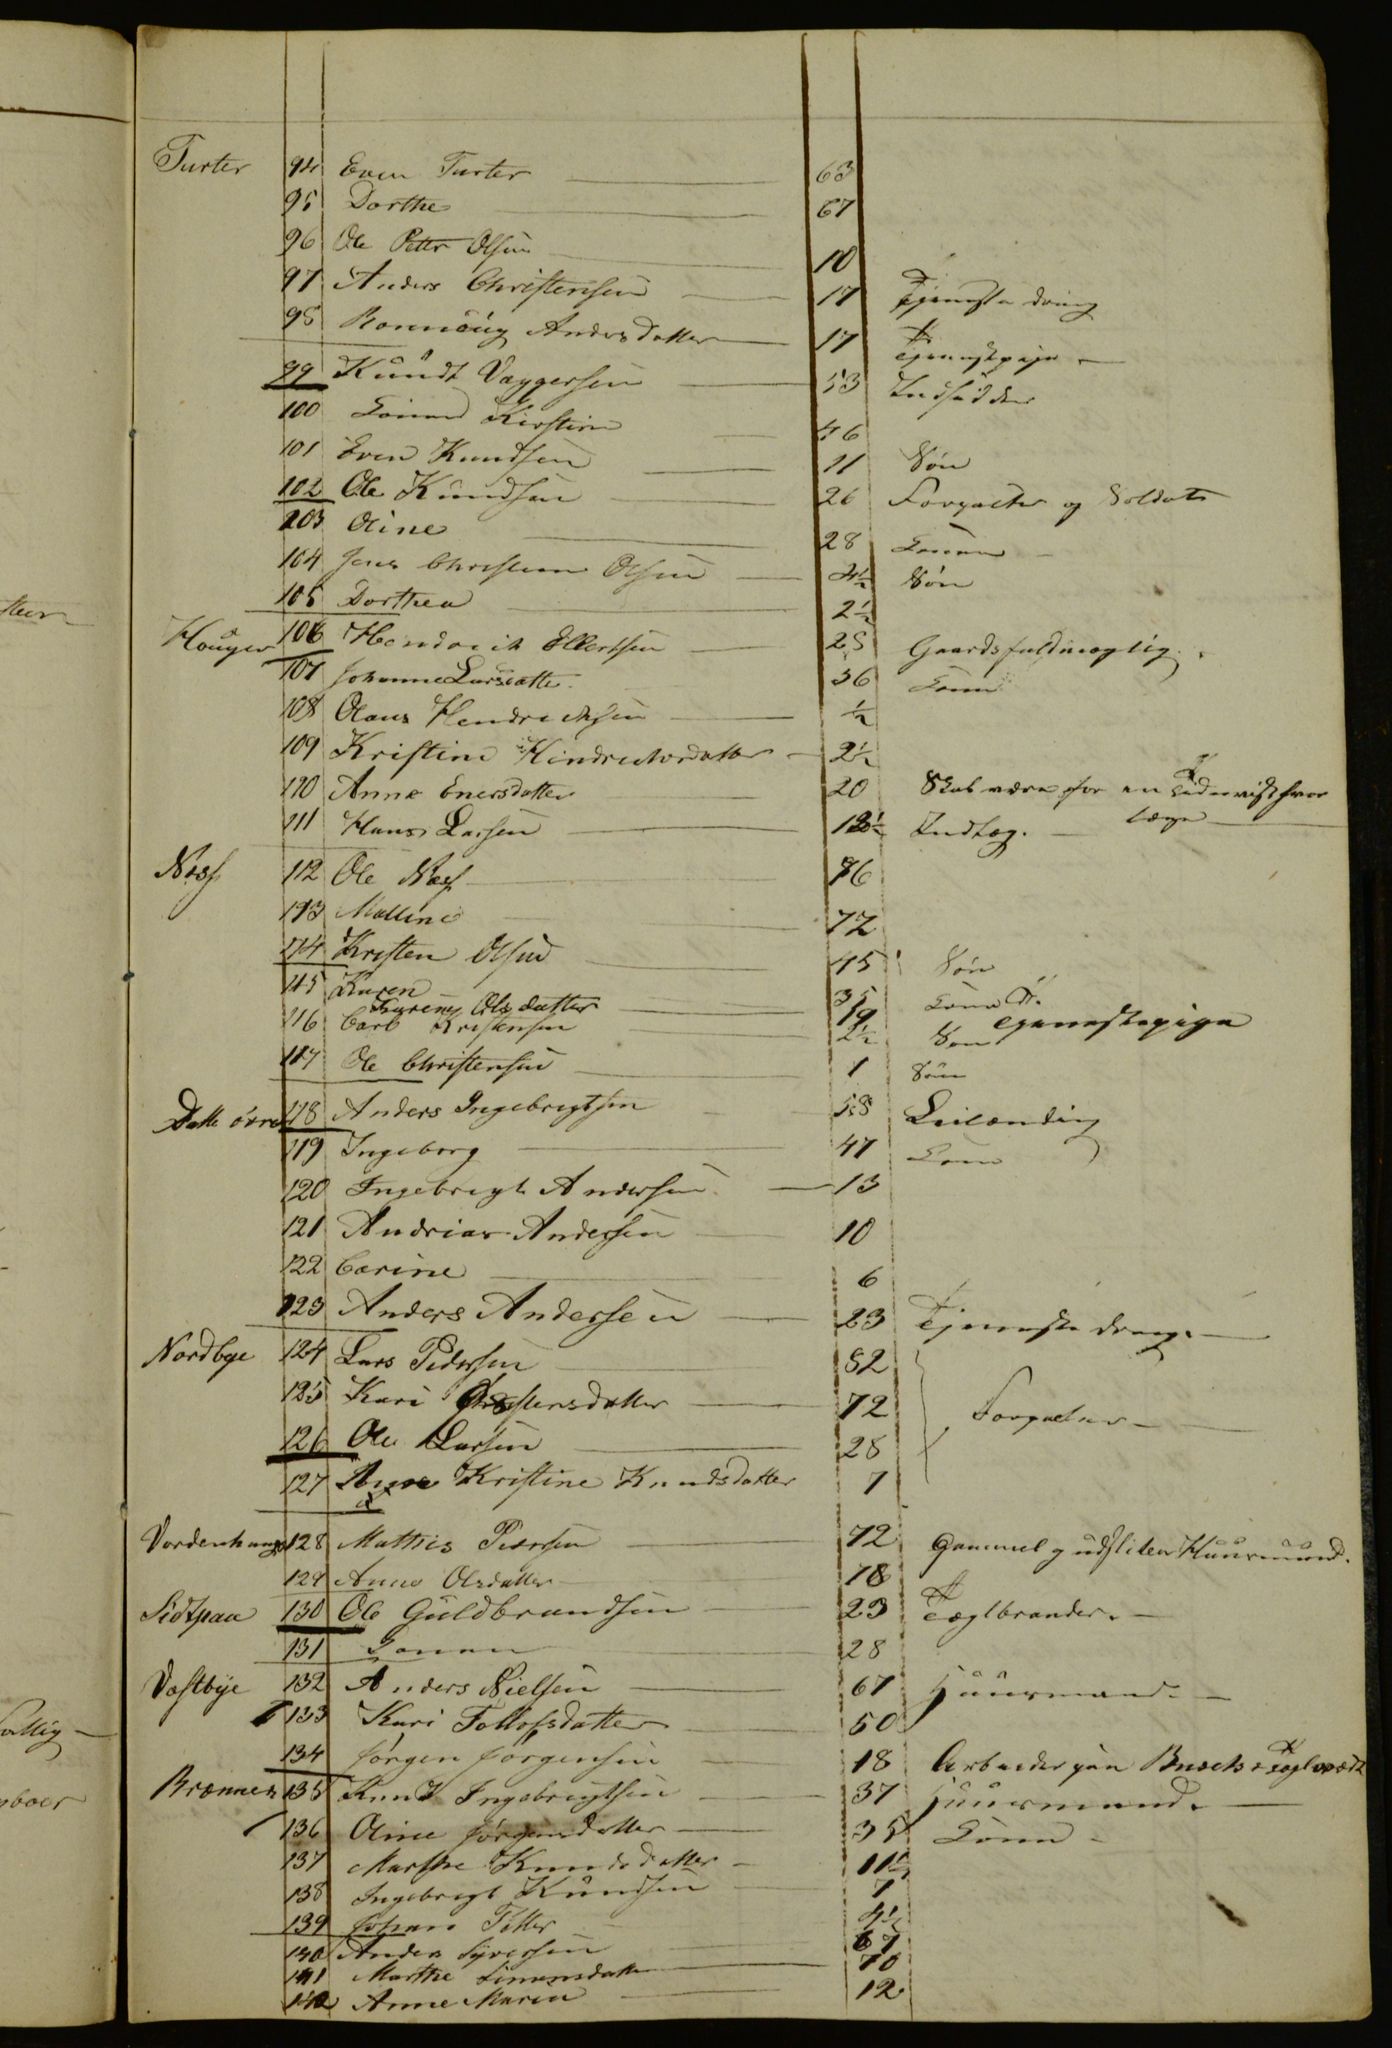 Turter 94 Even Turter 63
95 Dorthe 67
96 Ole Petter Olsen 10
97 Anders Christensen 17 Tjeneste dreng
98 Ronnoug Andersdatter 17 Tjenestpige
99 Knudt Vaggersen 53 Indsidder
100 Konen Kirstine 46
101 Even Knudsen 11 Søn
102 Ole Knudsen 26 Forpacter og Soldat
103 Oline 28 Konen
104 Jens Christian Olsen 4½ Søn
105 Dorthea 2½
Houger 106 Hendrick Ellertsen 25 Gaardsfuldmægtig.
107 Johanne Larsdatter 36 Kone
108 Olaus Hendricksen ½
109 Kristine Hindricksdatter 2½
110 Anne Enersdatter 20 Skal være for en
111 Hans Larsen Indlæg.
Næss 112 Ole Næss 76
113 Malline 72
114 Kristen Olsen 45 Søn
115 Karen 35 Kone
Karene Olsdatter 19 Tjenestepige
116 Carl Kristensen 2½ Søn
117 Ole Christensen 1 Søn
Datte øvre 118 Anders Ingebrigtsen 58 Leilænding
119 Ingeborg 47 Kone
120 Ingebrigt Andersen 13
121 Andrias Andersen 10
122 Carine 6
123 Anders Andersen 23 Tjeneste dreng.
Nordbye 124 Lars Pedersen 82
125 Kari Christensdatter 72 Forpacter
126 Ole Larsen 28
127 Anne Kristine Knudsdatter 7
Vordenhaug 128 Mathis Pedersen 72 Gammel og udsliden Huusmand.
129 Anne Olsdatter 78
Lidtpaa 130 Ole Guldbrandsen 23 Tæglbrænder.
131 Konen 28
Væstbye 132 Anders Nielsen 67 Huusmand.
133 Kari Tollofsdatter 50
134 Jørgen Jørgensen 18 Arbeider paa Buschs Taglværk
Brænnen 135 Knud Ingebrigtsen 37 Huusmand.
136 Oline Jørgensdatter 35 Kone
137 Marthe Knudsdatter 11½
138 Ingebrigt Knudsen 7
139 Johan Petter 4½
140 Anders Syversen 67
141 Marthe Simensdatter 70
142 Anne Maren 12